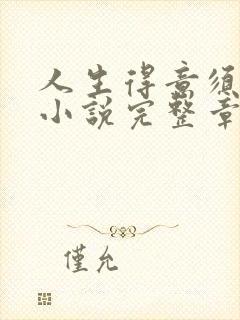 人生得意須
小說完整章
僅允